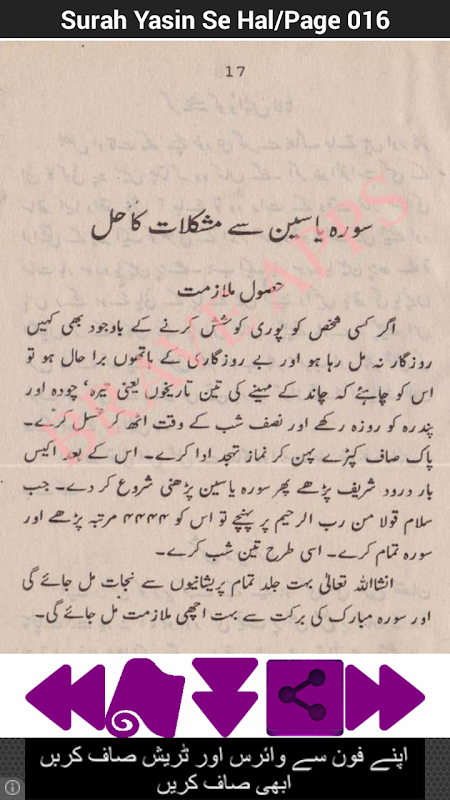 Surah Yasin Se Hal/Page 016
17
سورہ یاسین سے مشکلات کا حل
حصول ملازمت
اگر کسی شخص کو پوری کوشش کرنے کے باوجود بھی کہیں
روزگار نہ مل رہا ہو اور بے روزگاری کے ہاتھوں برا حال ہو تو
اس کو چاہئے کہ چاند کے مہینے کی تین تاریخوں یعنی تیرہ‘ چودہ اور
پندرہ کو روزہ رکھے اور نصف شب کے وقت اٹھ کر غسل کرے۔
پاک صاف کپڑے پہن کر نماز تہجد ادا کرے۔ اس کے بعد اکیس
بار درود شریف پڑھے پھر سورہ یاسین پڑھنی شروع کر دے۔ جب
سلام قولا من رب الرحیم پر پہنچے تو اس کو ۴۴۴۴ مرتبہ پڑھے اور
سورہ تمام کرے۔ اسی طرح تین شب کرے۔
انشااللہ تعالیٰ بہت جلد تمام پریشانیوں سے نجات مل جائے گی
اور سورہ مبارک کی برکت سے بہت اچھی ملازمت مل جائے گی۔
BRAVE APPS
اپنے فون سے وائرس اور ٹریش صاف کریں
ابھی صاف کریں